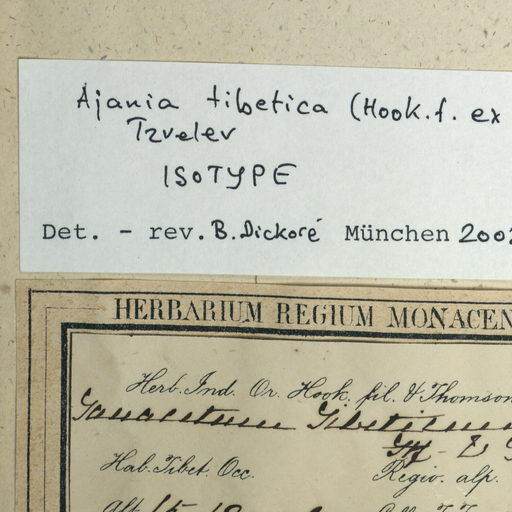 Ajania tibetica (Hook.f. ex
Tzvelev
ISOTYPE
Det. - rev. B. Dickoré München 200
HERBARIUM REGIUM MONACEN
Herb. Ind. Or. Hook. fil. & Thomson
Tanacetum Tibeticum
Hab. Tibet. Occ.
Regio. alp.